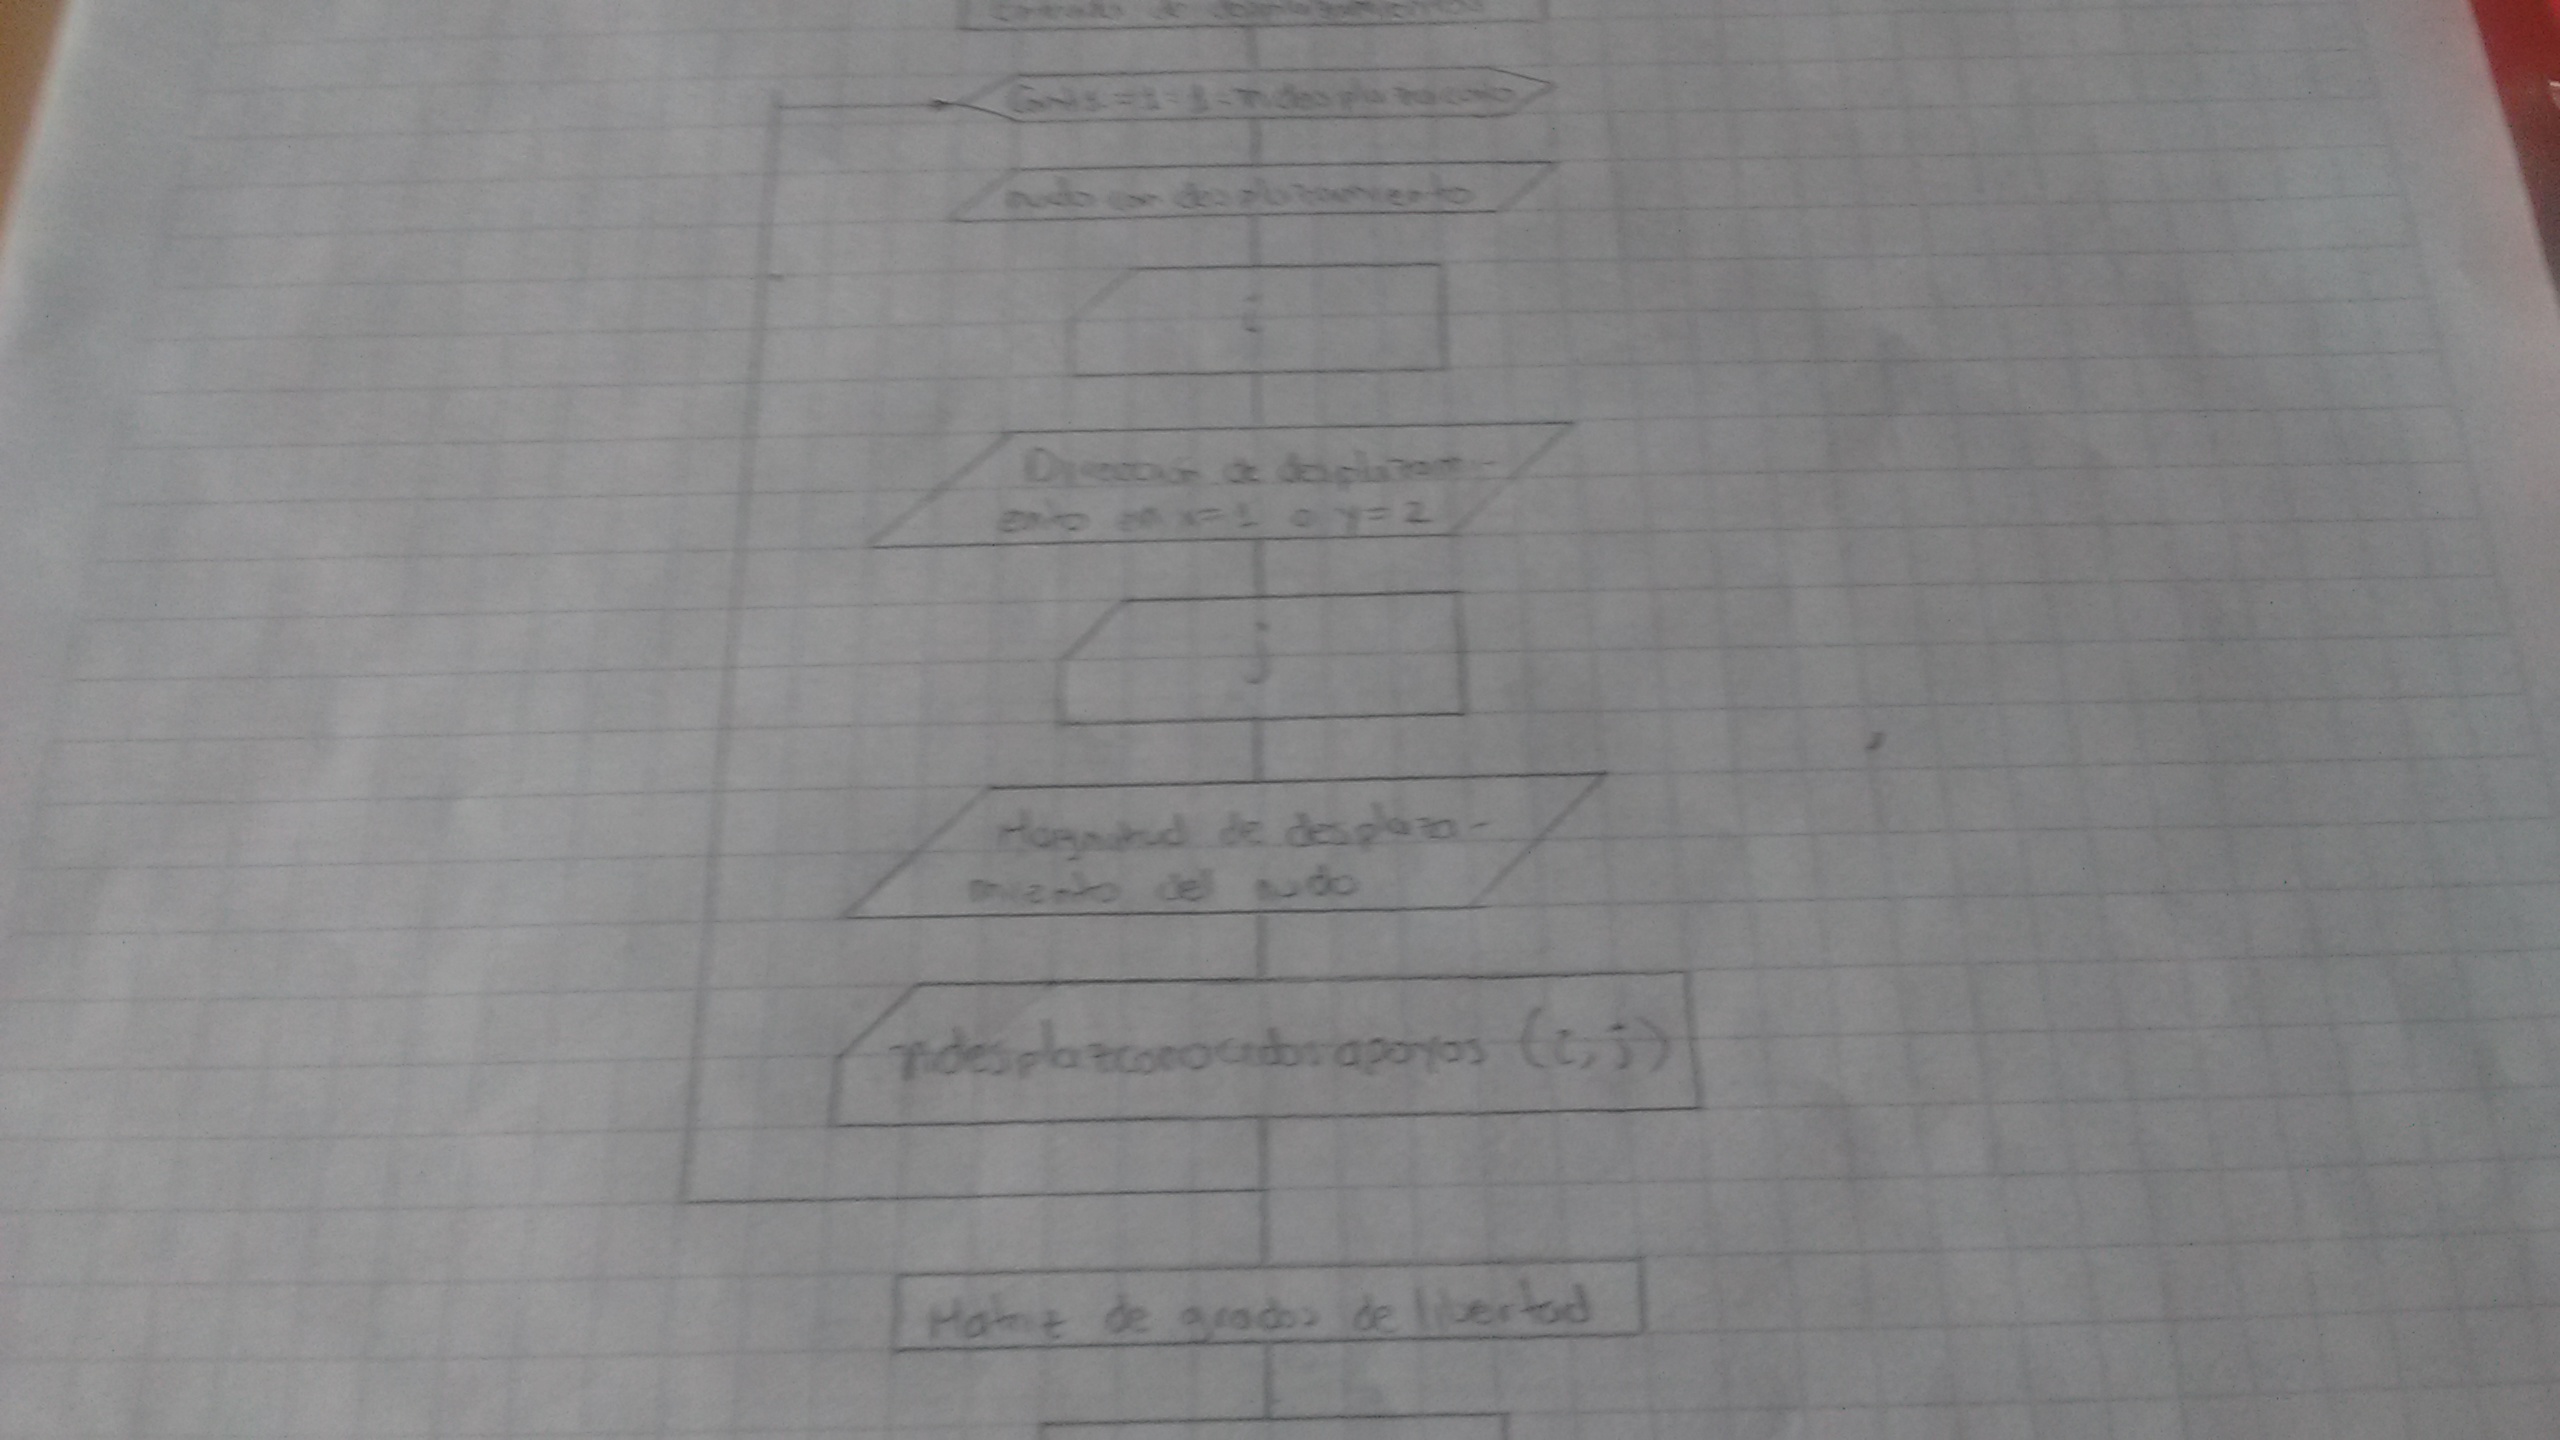 de desplazamientos
nudo con desplazamiento
i
Dirección de desplazam-
iento en x=1 o y=2
j
Magnitud de desplaza-
miento del nudo
ndesplazconocidosapoyos (i,j)
Matriz de grados de libertad